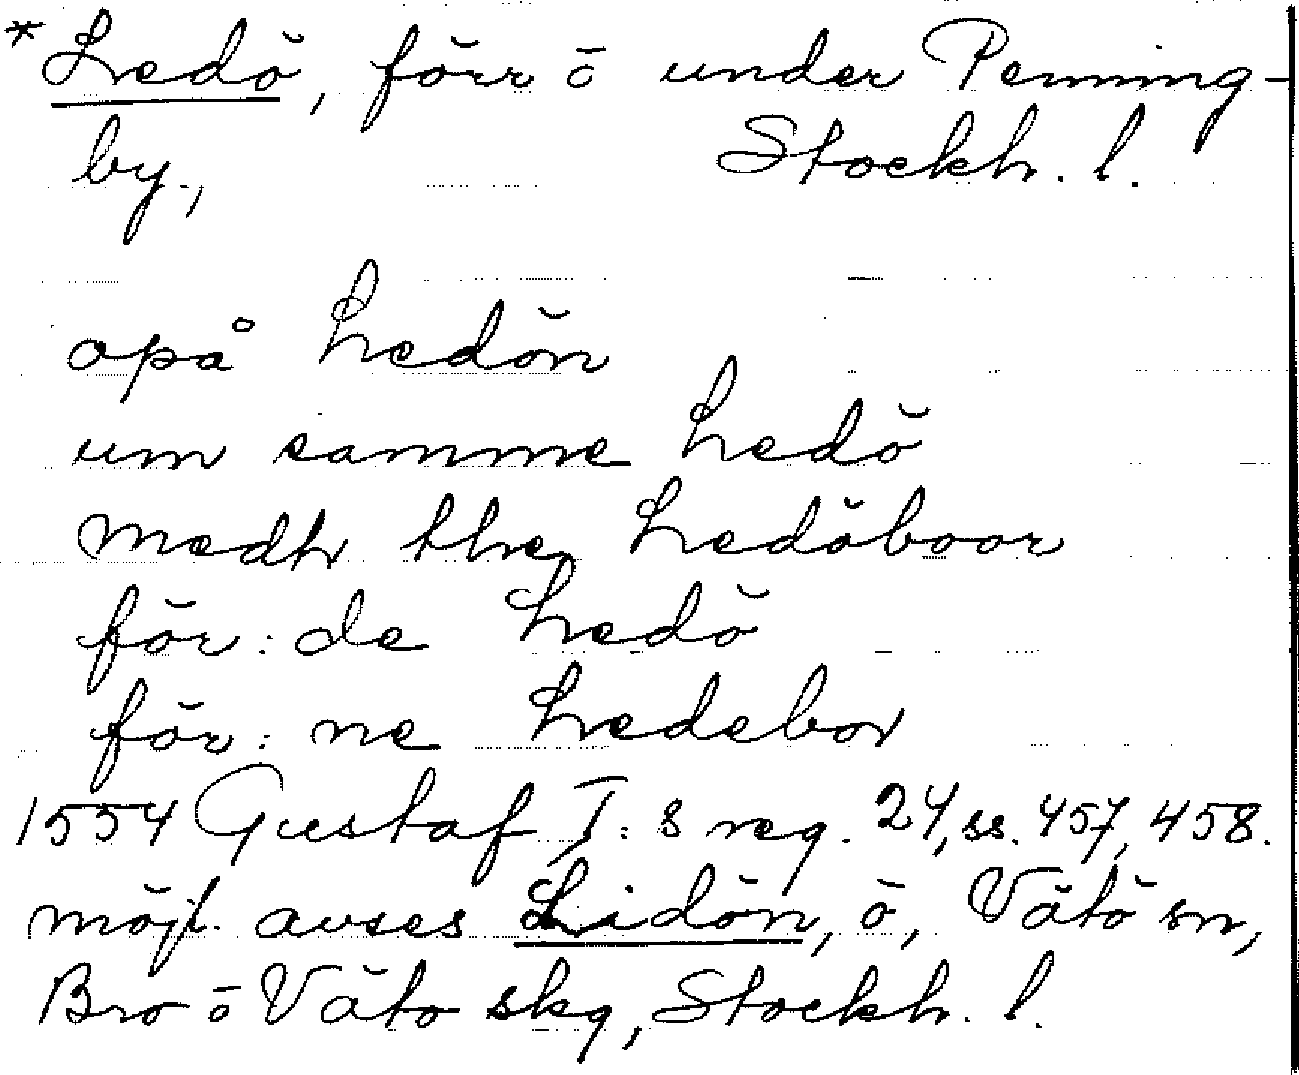 *Ledö, förr ö under Penning-
by, Stockh. l.
opå Ledön
um samme Ledö
medh the Ledöboor
för: de Ledö
för: ne Ledebor
1554 Gustaf I: s reg. 24, ss. 457, 458.
möjl. avses Lidön, ö, Vätö sn,
Bro o Vätö skg, Stockh. l.